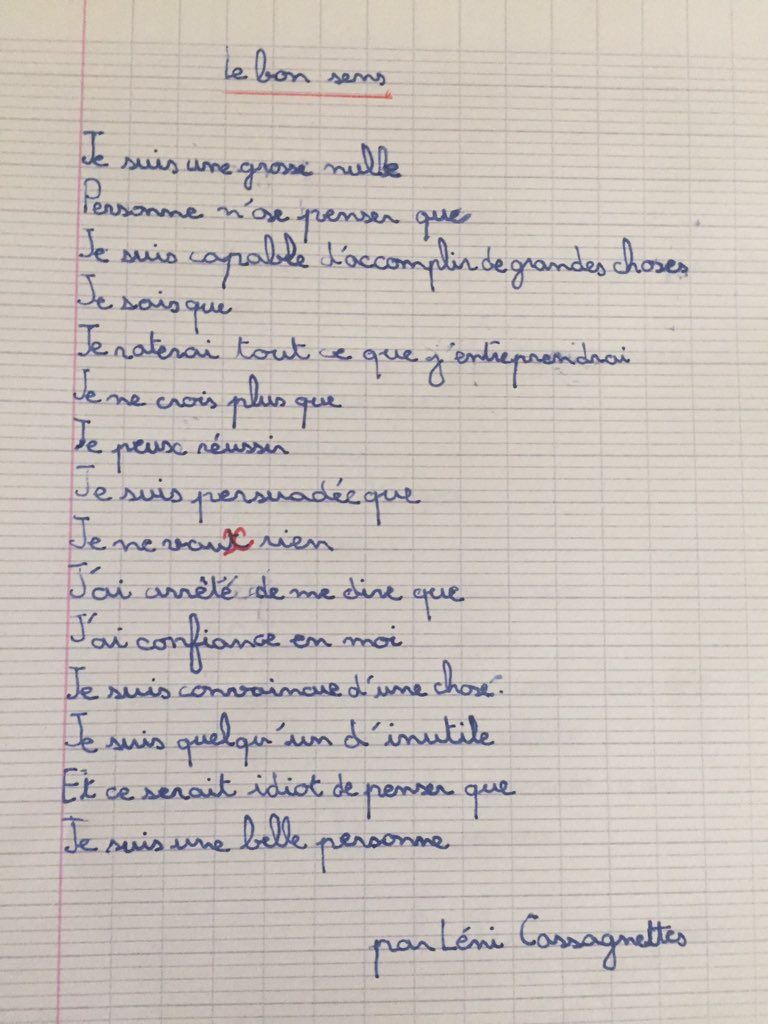 Le bon sens
Je suis une grosse nulle
Personne n'ose penser que
Je suis capable d'accomplir de grandes choses
Je sais que
Je raterai tout ce que j'entreprendrai
Je ne crois plus que
Je peux réussir
Je suis persuadée que
Je ne vaux rien
J'ai arrêté de me dire que
J'ai confiance en moi
Je suis convaincue d'une chose.
Je suis quelqu'un d'inutile
Et ce serait idiot de penser que
Je suis une belle personne
par Léni Cassagnettes